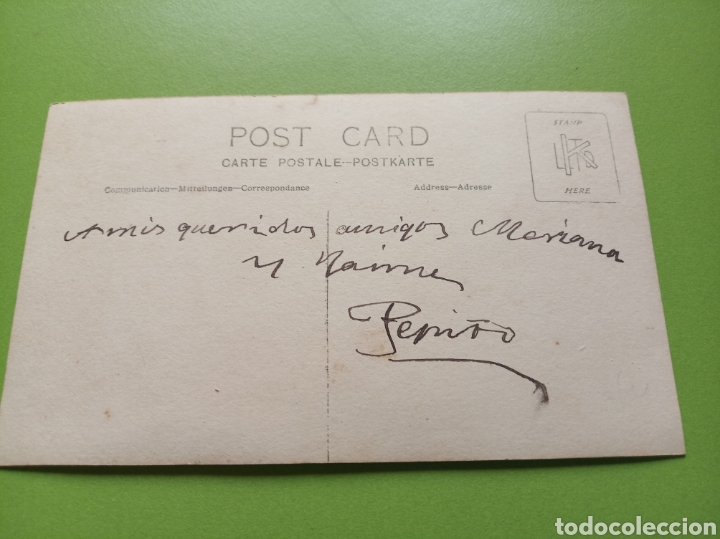 POST CARD
CARTE POSTALE—POSTKARTE
STAMP
HERE
Communication—Mitteilungen—Correspondance
Address—Adresse
A mis queridos amigos Mariana
y Jaime
Pepito
todocoleccion